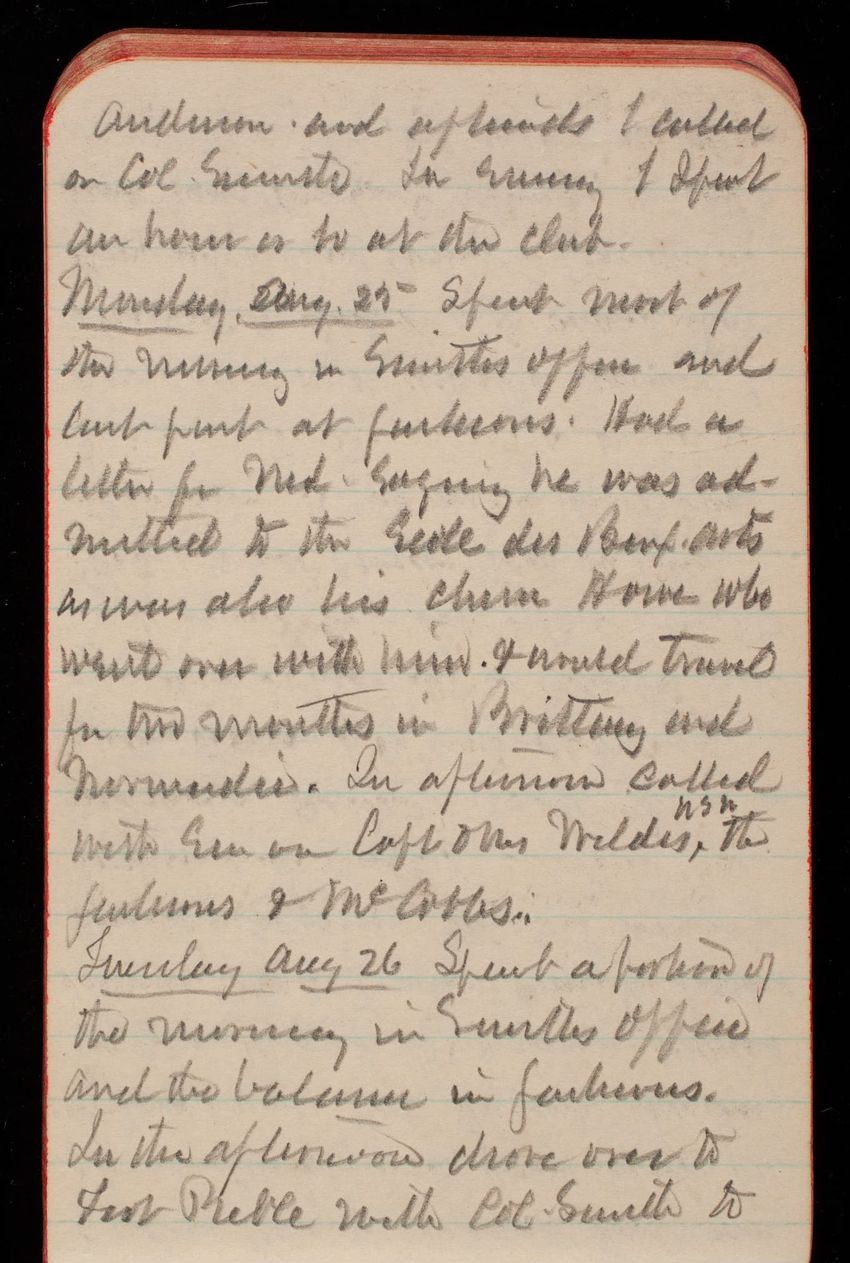 Anderson and afterwards I called
on Col. Smith. In evening I spent
an hour or so at the club.
Monday, Aug. 25 Spent most of
the morning in Smiths office and
last part at Jacksons. Had a
letter fr Ned. Saying he was ad-
mitted to the Ecole des Beux. arts
as was also his chum Howe who
went over with him. & would travel
for two months in Brittany and
Normandie. In afternoon called
with Em on Capt & Mrs Wildes, USN the
Jacksons & McCobbs.
Tuesday Aug 26 Spent a portion of
the morning in Smiths office
and the balance in Jacksons.
In the afternoon drove over to
Fort Preble with Col. Smith to